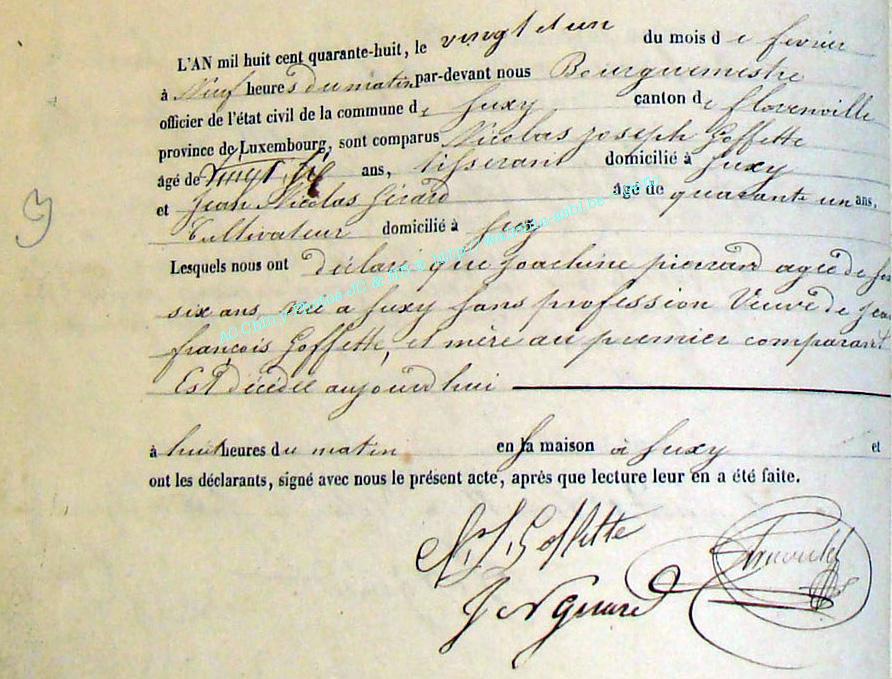 L'AN mil huit cent quarante-huit, le vingt et un du mois de fevrier
à Neuf heures du matin par-devant nous Bourguemestre
officier de l'état civil de la commune de Suxy canton de florenville
province de Luxembourg, sont comparus Nicolas Joseph Goffette
âgé de vingt six ans, tisserant domicilié à Suxy
et Jean Nicolas Gérard âgé de quarante un ans,
Cultivateur domicilié à Suxy
Lesquels nous ont déclaré que Joachine pierard agée de
six ans née a Suxy sans profession Veuve de Jean
françois Goffette, et mère au premier comparant
Est décédée aujourd'hui
à huit heures du matin en sa maison à Suxy et
ont les déclarants, signé avec nous le présent acte, après que lecture leur en a été faite.
N. J. Goffette
J N Gerard
3